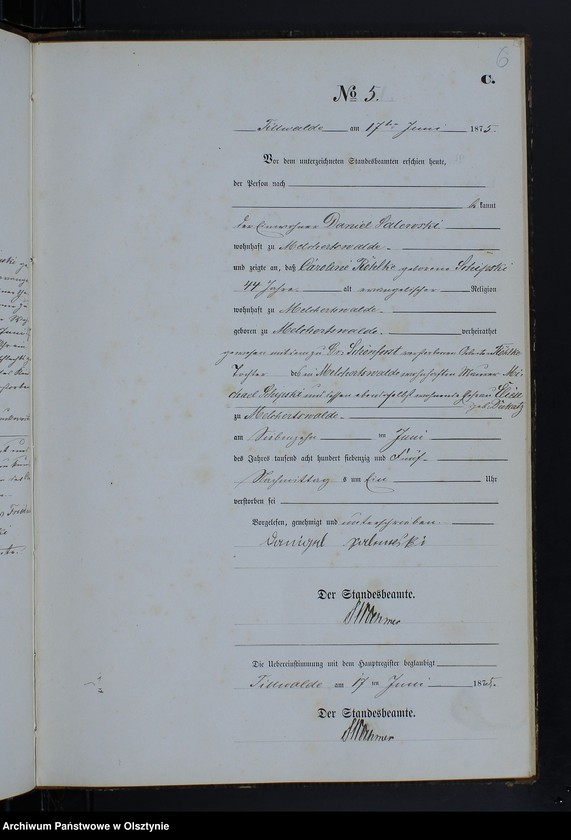 6
C.
No 5.
Tillwalde am 17ten Juni 1875.
Vor dem unterzeichneten Standesbeamten erschien heute,
der Person nach
be kannt
der Einwohner Daniel Salewski
wohnhaft zu Melchertswalde
und zeigte an, daß Caroline Köhlke geborene
44 Jahre alt evangelischer Religion
wohnhaft zu Melchertswalde
geboren zu Melchertswalde verheirathet
gewesen mit dem zu Dt. verstorbenen Köhlke
Tochter des in Melchertswalde wohnhaften Maurer Mi-
chael und dessen ebendaselbst wohnende Ehefrau
geb.
zu Melchertswalde
am Siebenzehn ten Juni
des Jahrs tausend acht hundert siebenzig und Fünf
Nachmittag s um Ein Uhr
verstorben sei
Vorgelesen, genehmigt und unterschrieben
Der Standesbeamte.
Die Uebereinstimmung mit dem Hauptregister beglaubigt
Tillwalde am 17 ten Juni 1875.
Der Standesbeamte.
Archiwum Państwowe w Olsztynie